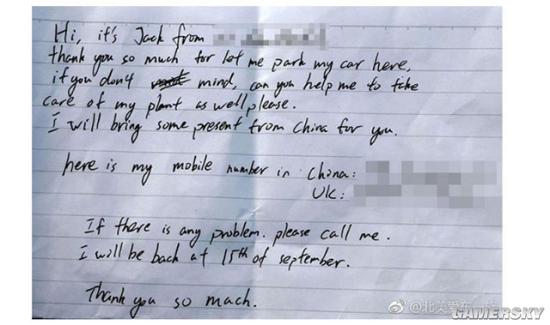 Hi, it's Jack from
thank you so much for let me park my car here,
if you don't mind, can you help me to take
care of my plant as well please.
I will bring some present from China for you.
here is my mobile number in China:
UK:
If there is any problem. please call me.
I will be back at 15th of september.
Thank you so mach.
@北美爱东
GAMERSKY